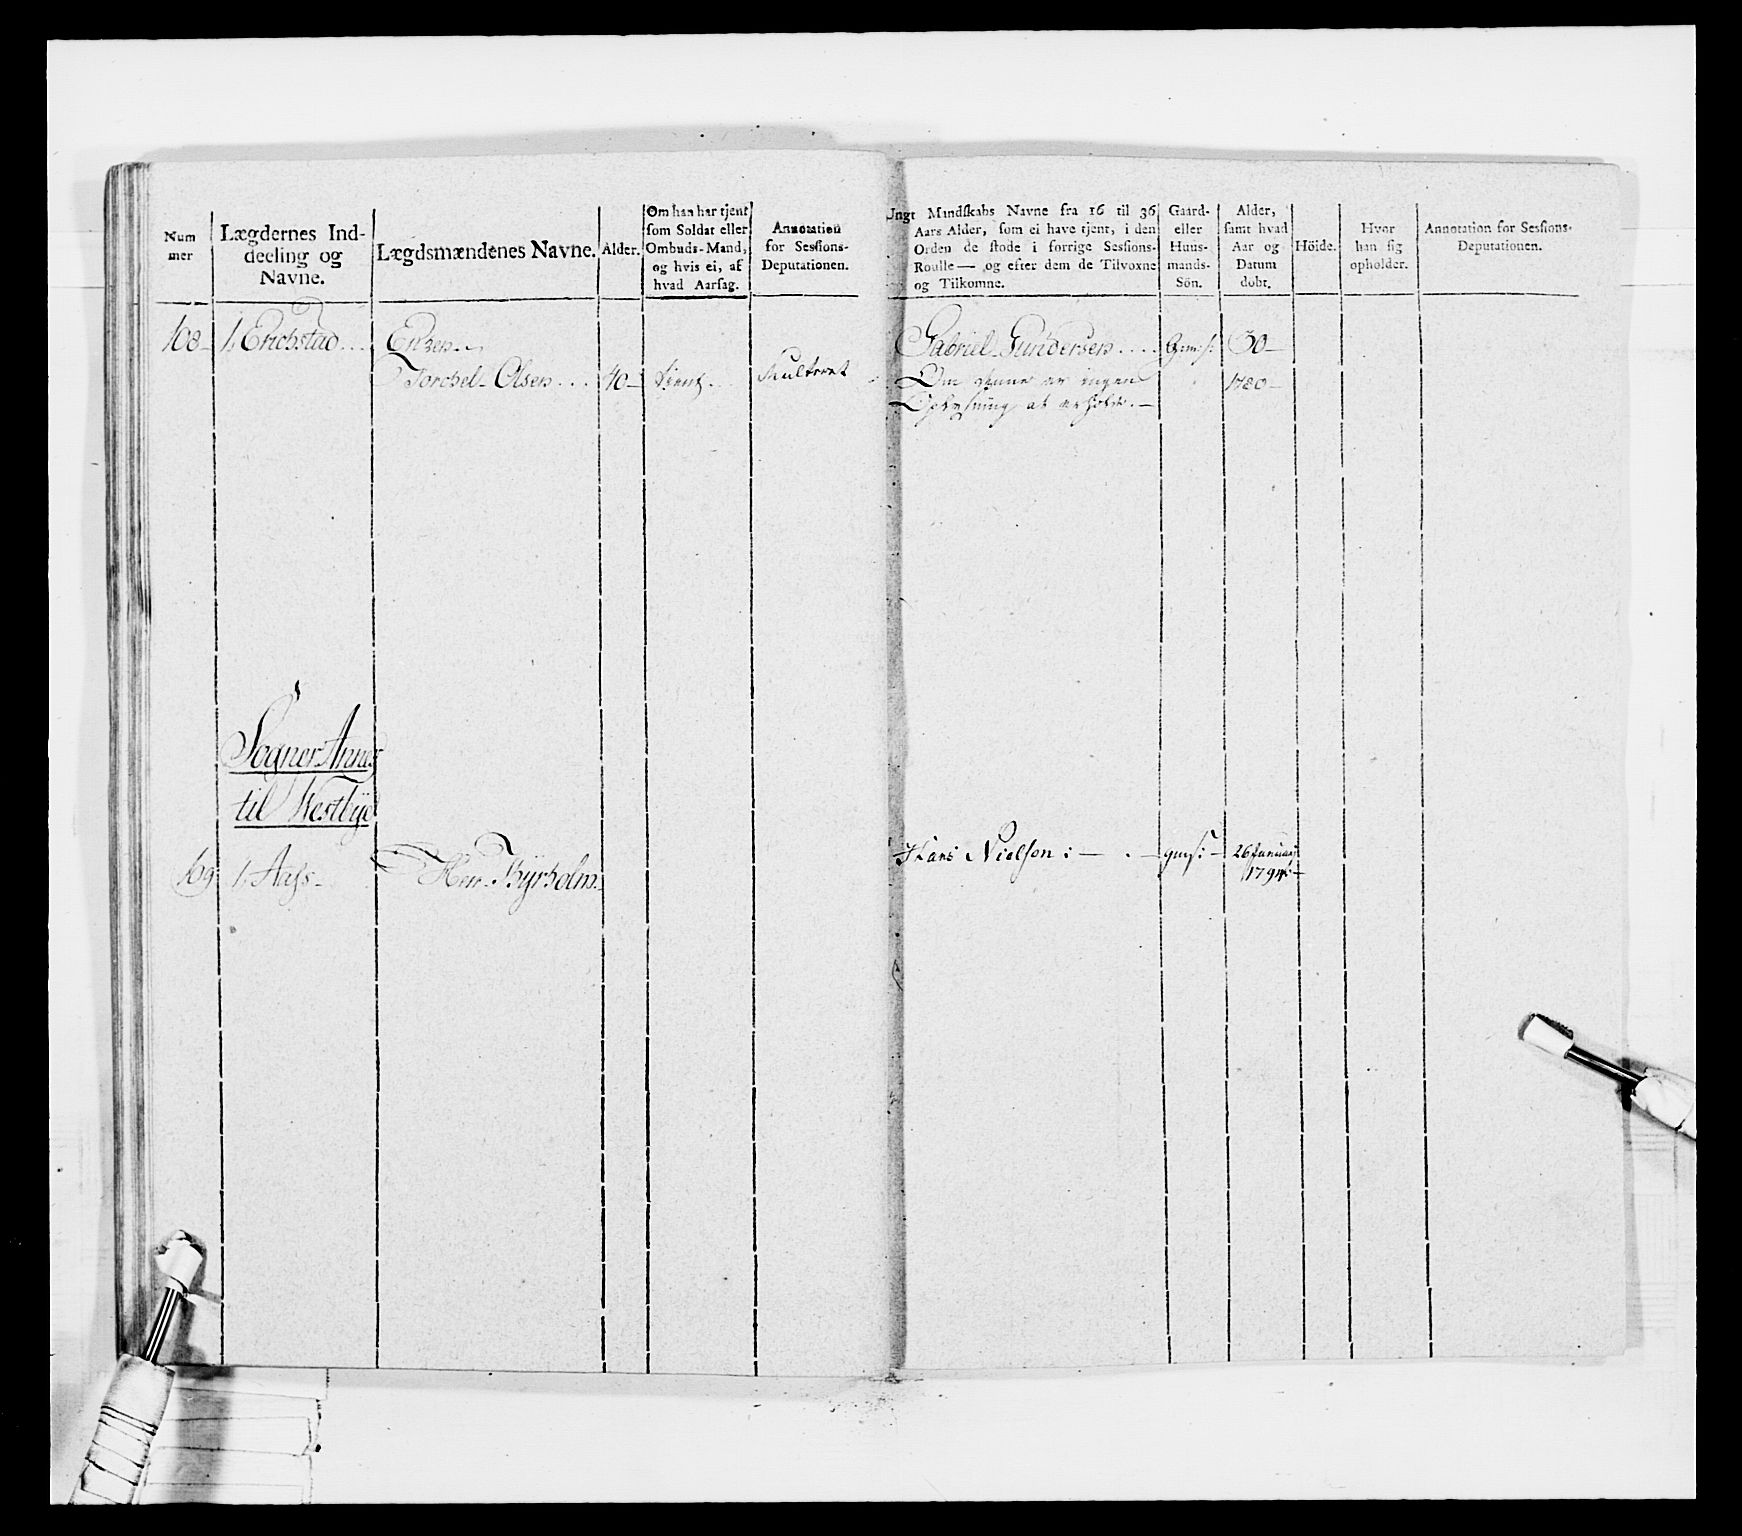 Num
mer
Lægdernes Ind-
deeling og
Navne.
Lægdsmændenes Navne.
Alder.
Om han har tjent
som Soldat eller
Ombuds-Mand,
og hvis ei, af
hvad Aarsag.
Annotation
for Sessions-
Deputationen.
Ungt Mandskabs Navne fra 16 til 36
Aars Alder, som ei have tjent, i den
Orden de stode i forrige Sessions-
Roulle — og efter dem de Tilvoxne
og Tilkomne.
Gaard-
eller
Huus-
mands-
Sön.
Alder,
samt hvad
Aar og
Datum
döbt.
Höide.
Hvor
han sig
opholder.
Annotation for Sessions-
Deputationen.
108- 1. Erichstad... Gabriel Gundersen.... Gm:s: 30-
Torchel Olsen... 40- tient. Om denne er ingen 1780-
Oplysning at erholde.-
Sogner Annex
til Westbye
109 1. Aass- Herr Thyrholm- Hans Nielsen:- .- gms:- 26 Januarj
1794:-